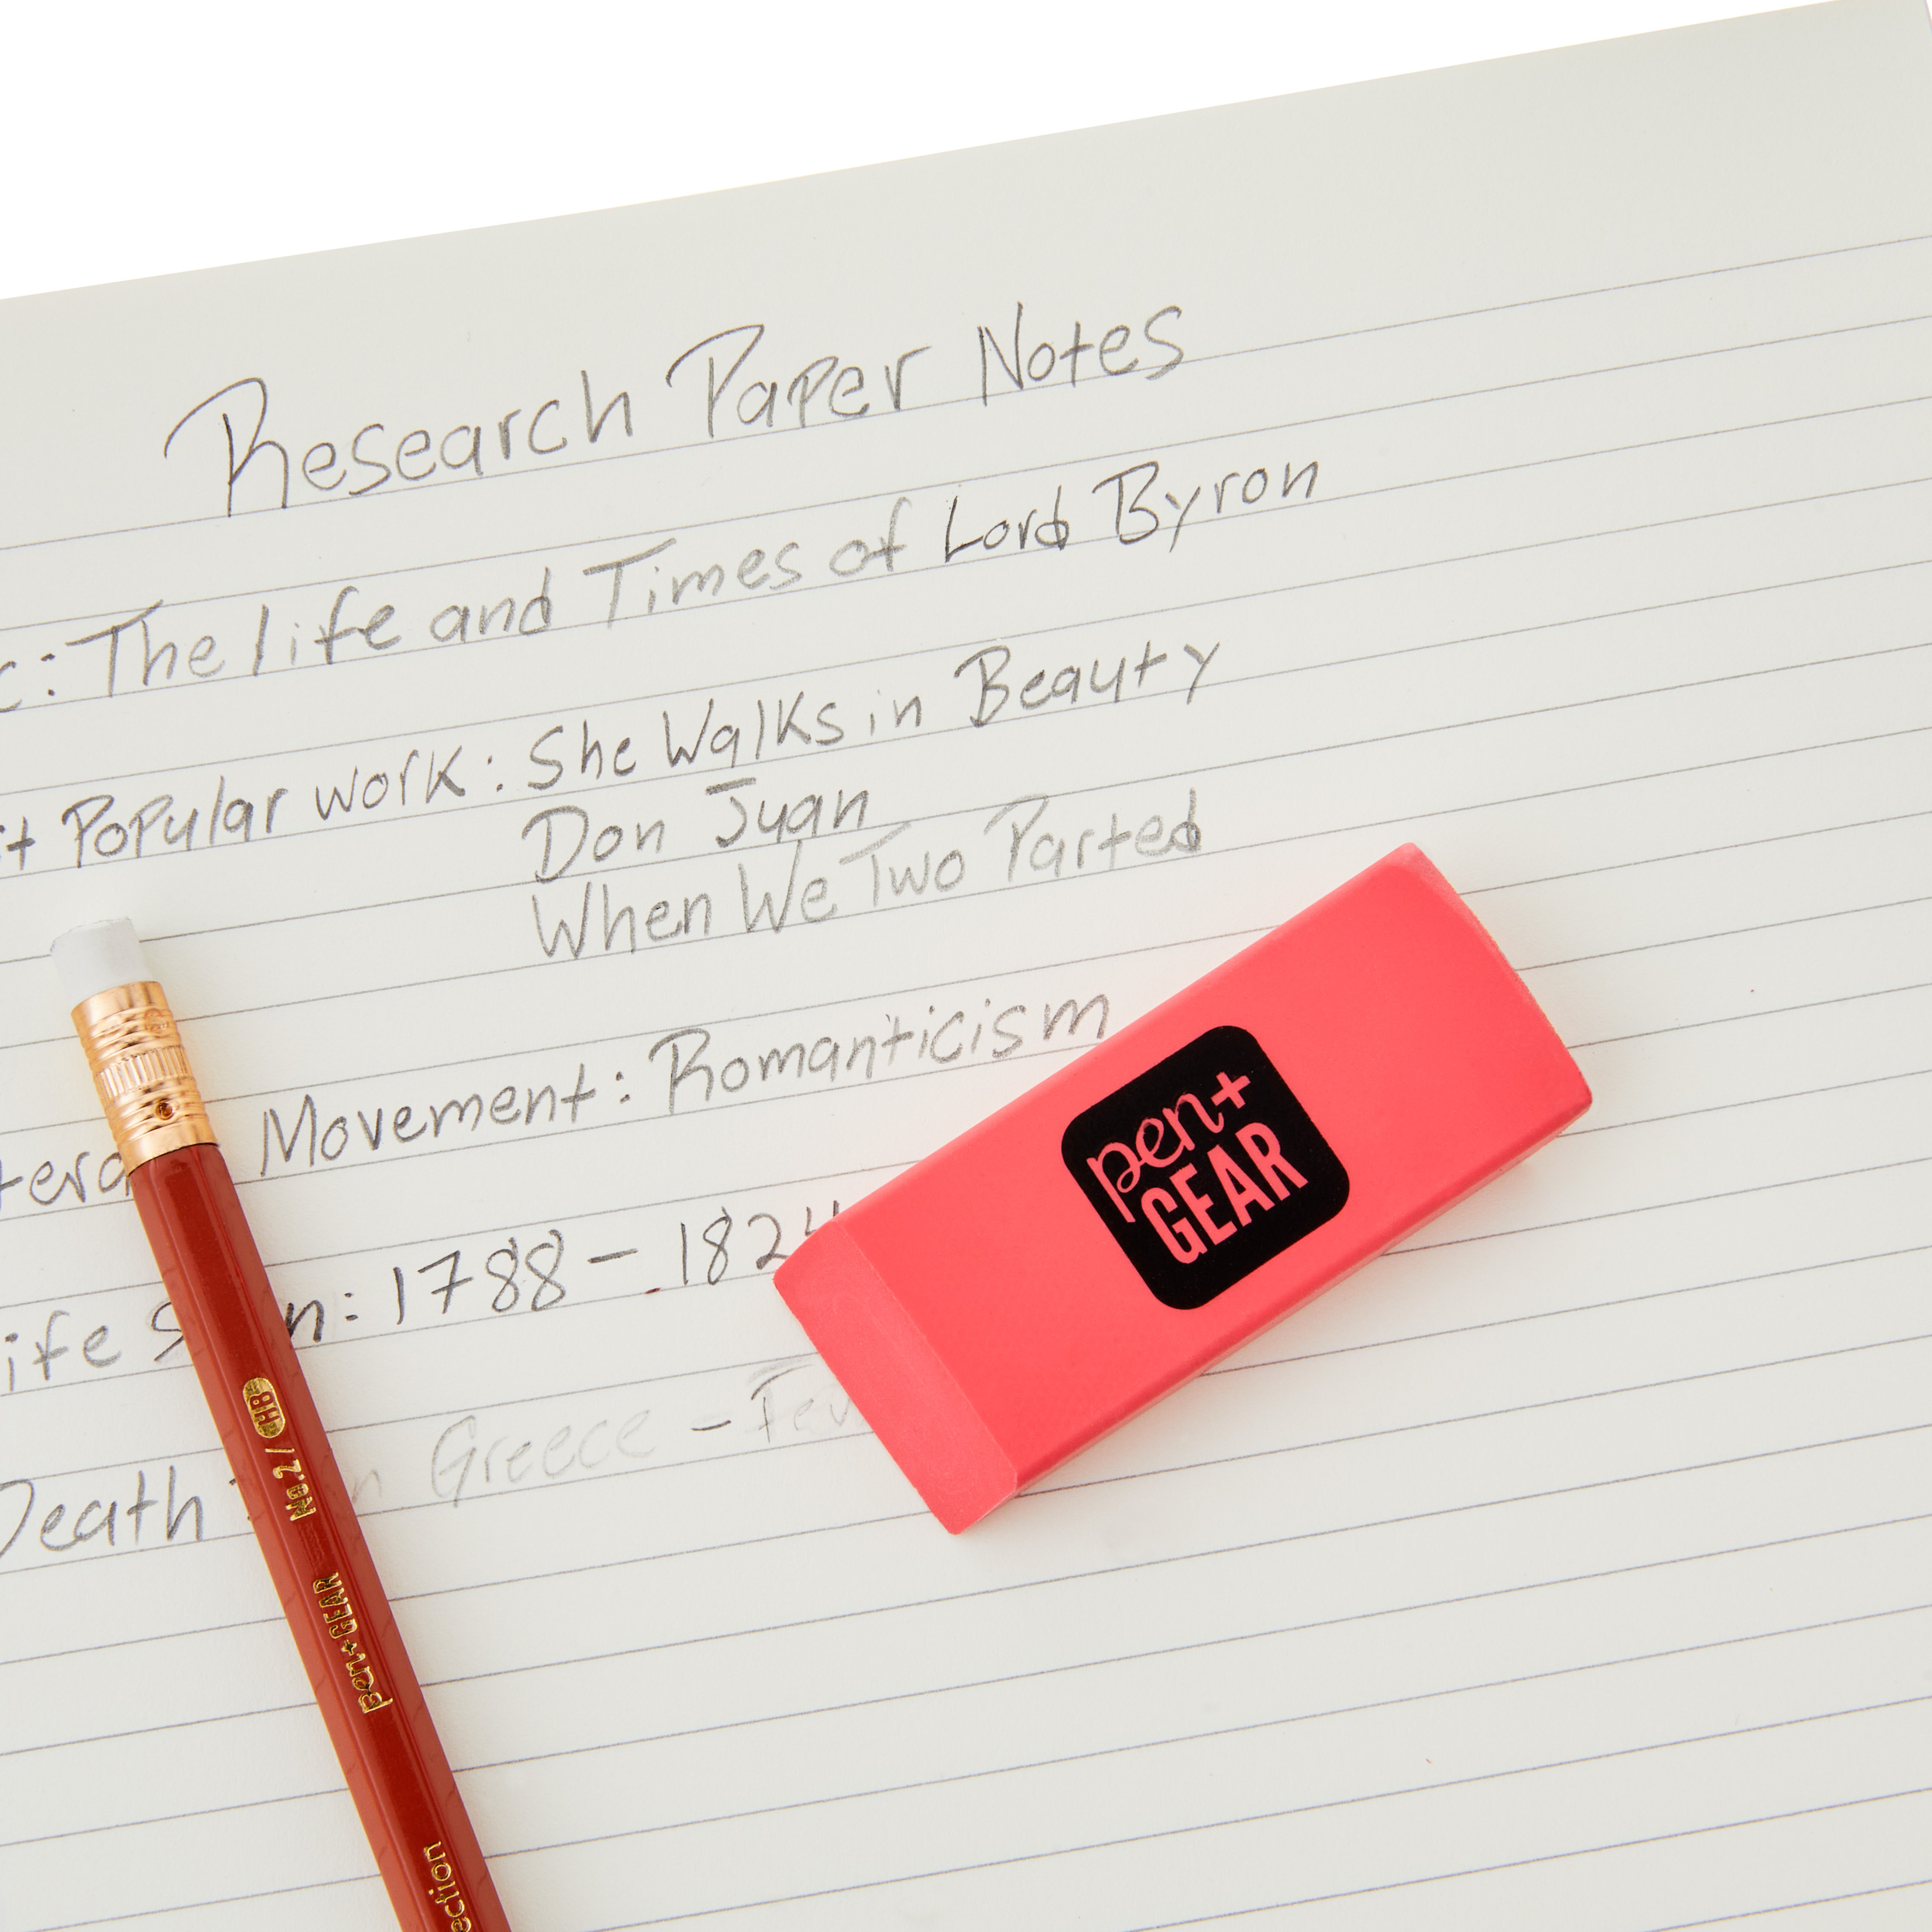 Research Paper Notes
c: The life and Times of Lord Byron
Popular work: She Walks in Beauty
Don Juan
When We Two Parted
Movement: Romanticism
ife 1788 - 1824
Death: in Greece -
pen+
GEAR
No.2 / HB
pen+GEAR
ection